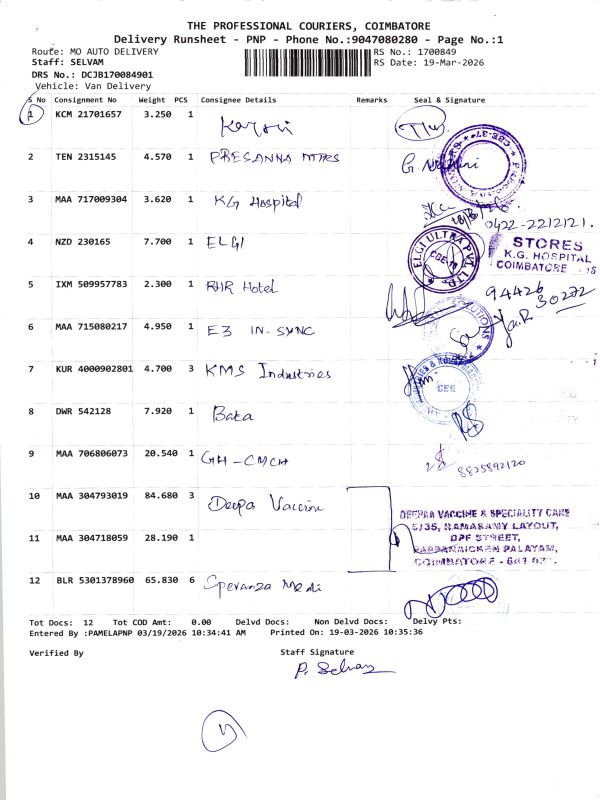 THE PROFESSIONAL COURIERS, COIMBATORE
Delivery Runsheet - PNP - Phone No.:9047080280 - Page No.:1
Route: MO AUTO DELIVERY
RS No.: 1700849
Staff: SELVAM
RS Date: 19-Mar-2026
DRS No.: DCJB170084901
Vehicle: Van Delivery
S No Consignment No Weight PCS Consignee Details Remarks Seal & Signature
1 KCM 21701657 3.250 1
2 TEN 2315145 4.570 1 PRESANNA MTRS
3 MAA 717009304 3.620 1 KG Hospital
0422-2212121.
4 NZD 230165 7.700 1 ELGI
ELGI ULTRA PVT LTD
STORES
K.G. HOSPITAL
COIMBATORE - 18
5 IXM 509957783 2.300 1 RHR Hotel
94426
30272
6 MAA 715080217 4.950 1 E3 IN-SYNC
7 KUR 4000902801 4.700 3 KMS Industries
8 DWR 542128 7.920 1 Bata
9 MAA 706806073 20.540 1 GH-CMCH
8825892120
10 MAA 304793019 84.680 3 Deepa Vaccine
DEEPAA VACCINE & SPECIALITY CARE
5/35, RAMASAMY LAYOUT,
11 MAA 304718059 28.190 1
DPF STREET,
PAPPANAICKEN PALAYAM,
COIMBATORE - 641 037.
12 BLR 5301378960 65.830 6 Speranza Medi
Tot Docs: 12 Tot COD Amt: 0.00 Delvd Docs: Non Delvd Docs: Delvy Pts:
Entered By :PAMELAPNP 03/19/2026 10:34:41 AM Printed On: 19-03-2026 10:35:36
Verified By Staff Signature
P. Selvam